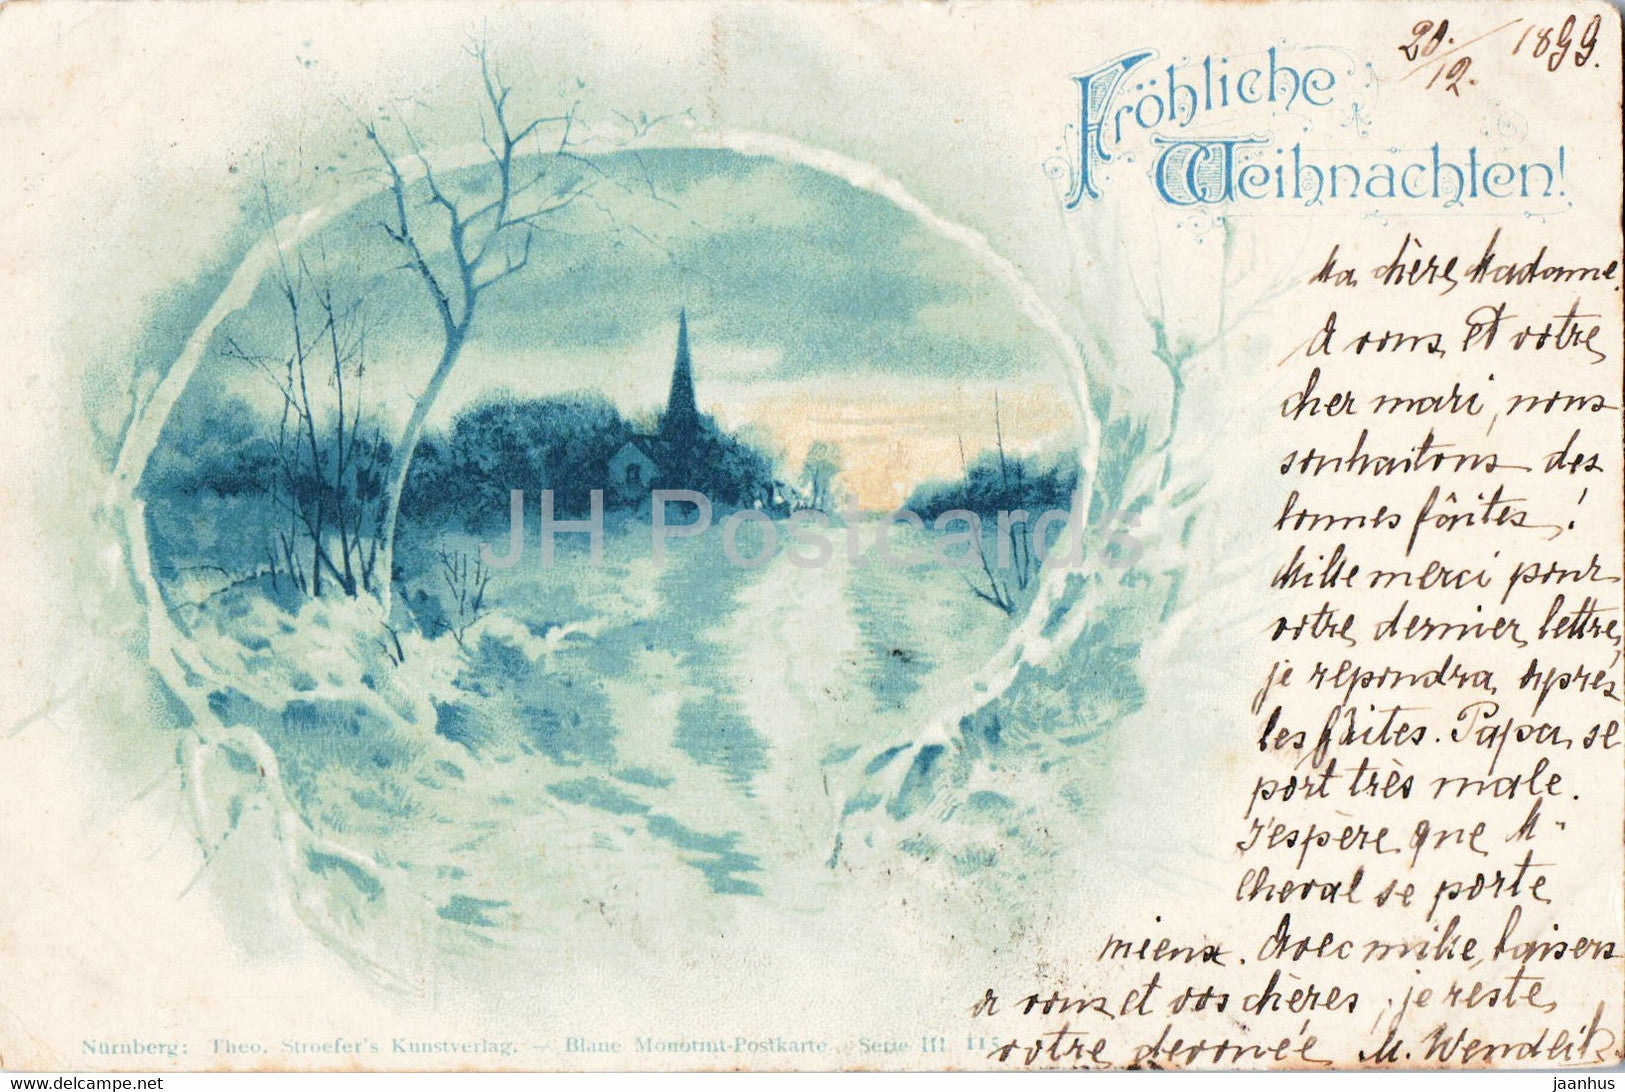 20./12. 1899.
Fröhliche
Weihnachten!
Ma chère Madame.
A vous et votre
cher mari, nous
souhaitons des
bonnes fâites!
Mille merci pour
votre dernier lettre,
je repondra après
les fâites. Papa se
port très male.
J'espère que M-
Cheval se porte
mieux. Avec mille baisers
a vous et vos chères, je reste
votre devouée M. Wendeik
JH Postcards
Nürnberg: Theo. Stroefer's Kunstverlag. — Blaue Monotint-Postkarte. Serie III 115
delcampe.net
jaanhus